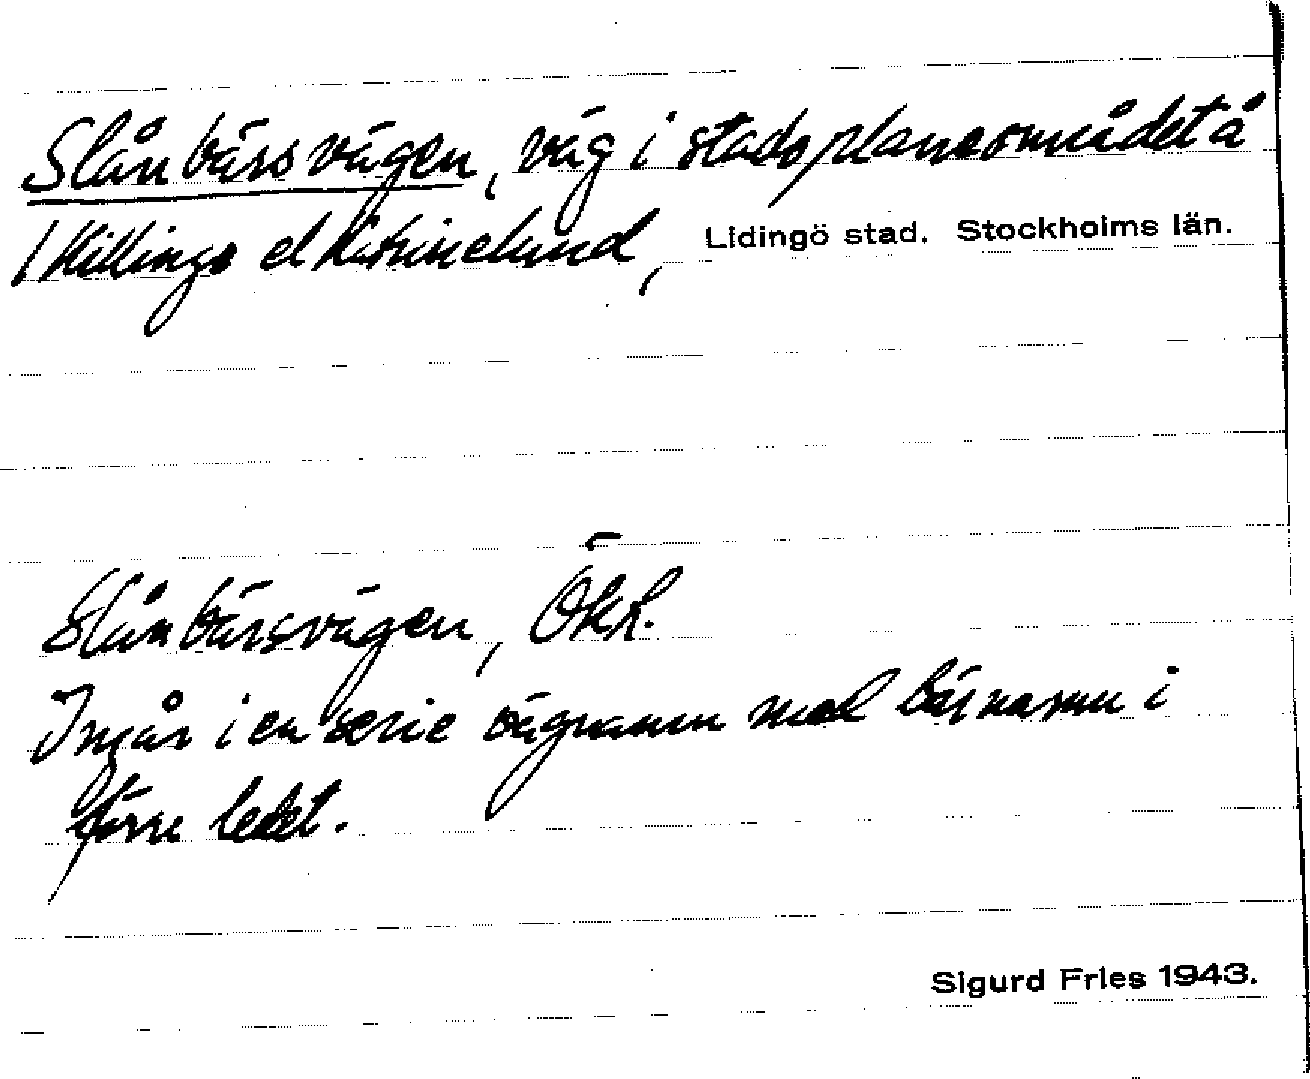 Slånbärsvägen, väg i stadsplaneområdet å
Killinge el Katrinelund, Lidingö stad. Stockholms län.
Slånbärsvägen, Ökk.
Ingår i en serie vägnamn med bärnamn i
förre ledet.
Sigurd Fries 1943.